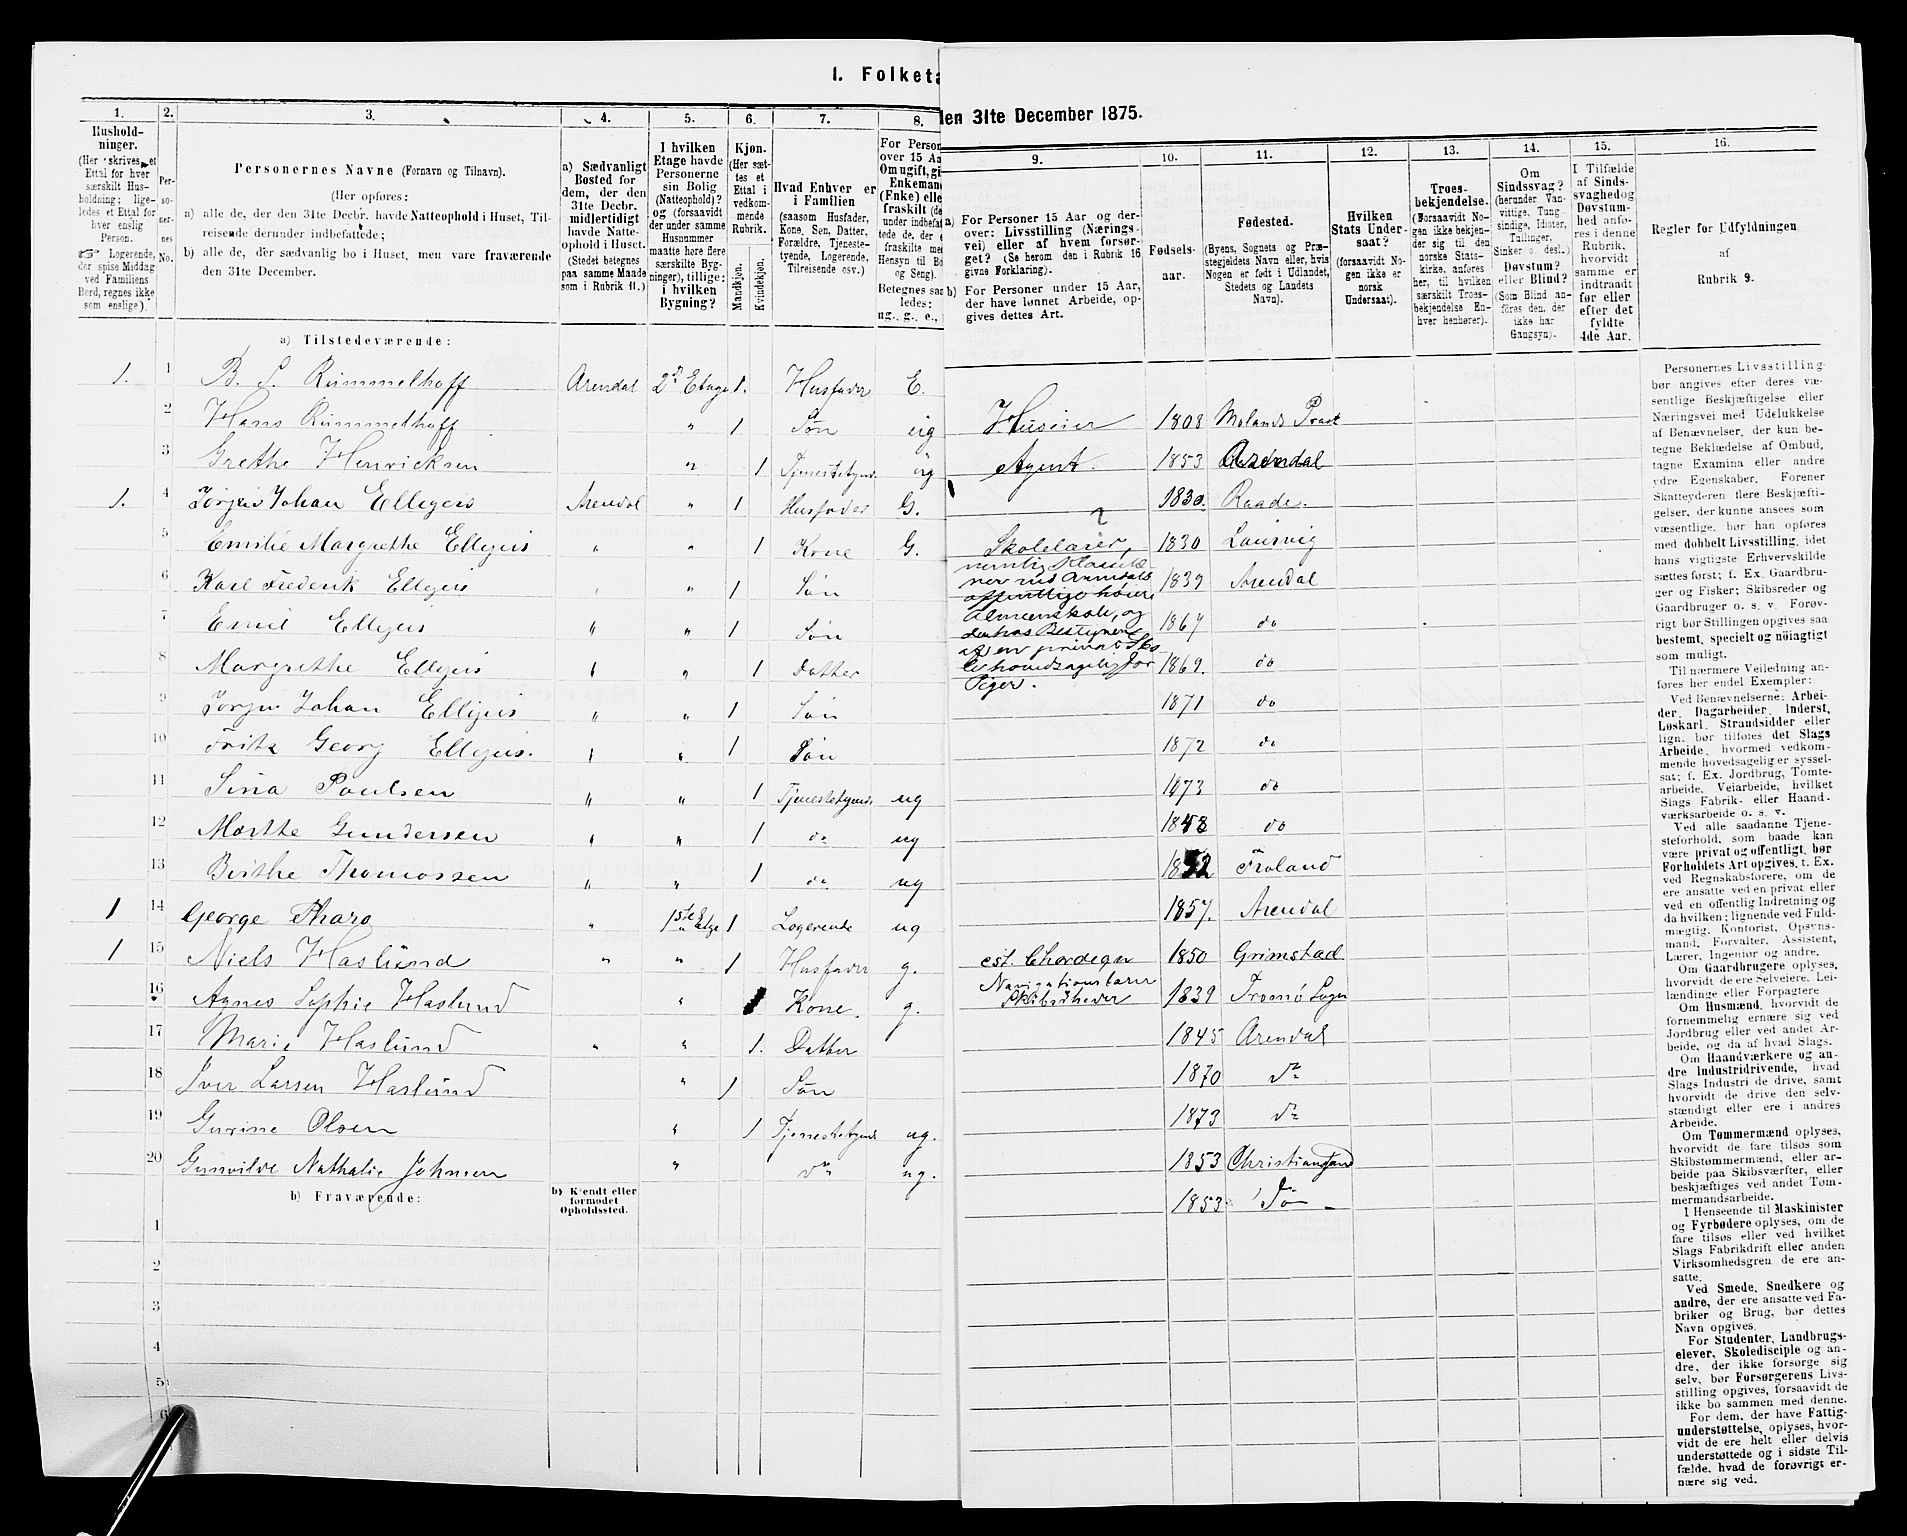 I. Folketa
den 31te December 1875.
1.
Hushold-
ninger.
(Her skrives et
Ettal for hver
særskilt Hus-
holdning; lige-
ledes et Ettal for
hver enslig
Person.
Logerende,
der spise Middag
ved Familiens
Bord, regnes ikke
som enslige).
2.
Per-
so-
ner-
nes
No.
3.
Personernes Navne (Fornavn og Tilnavn).
(Her opføres:
a) alle de, der den 31te Decbr. havde Natteophold i Huset, Til-
reisende derunder indbefattede;
b) alle de, der sædvanlig bo i Huset, men vare fraværende
den 31te December.
4.
a) Sædvanligt
Bosted for
dem, der den
31te Decbr.
midlertidigt
havde Natte-
ophold i Huset.
(Stedet betegnes
paa samme Maade
som i Rubrik 11.)
5.
I hvilken
Etage havde
Personerne
sin Bolig
(Natteophold)?
og (forsaavidt
der under samme
Husnummer
maatte høre flere
særskilte Byg-
ninger), tillige:
i hvilken
Bygning?
6.
Kjøn.
(Her sæt-
tes et
Ettal i
vedkom-
mende
Rubrik.
Mandkjøn.
Kvindekjøn.
7.
Hvad Enhver er
i Familien
(saasom Husfader,
Kone, Søn, Datter,
Forældre, Tjeneste-
tyende, Logerende,
Tilreisende osv.)
8.
For Person
over 15 Aa
Om ugift, gi
Enkemand
(Enke) elle
fraskilt (de
under indbefat
tede de, der e
fraskilte me
Hensyn til Bo
og Seng).
Betegnes saa
ledes:
ug., g., e.,
9.
a) For Personer 15 Aar og der-
over: Livsstilling (Nærings-
vei) eller af hvem forsør-
get? (Se herom den i Rubrik 16
givne Forklaring).
b) For Personer under 15 Aar,
der have lønnet Arbeide, op-
gives dettes Art.
10.
Fødsels-
aar.
11.
Fødested.
(Byens, Sognets og Præ-
stegjeldets Navn eller, hvis
Nogen er født i Udlandet,
Stedets og Landets
Navn).
12.
Hvilken
Stats Under-
saat?
(forsaavidt No-
gen ikke er
norsk
Undersaat).
13.
Troes-
bekjendelse.
(Forsaavidt No-
gen ikke bekjen-
der sig til den
norske Stats-
kirke, anføres
her, til hvilken
særskilt Troes-
bekjendelse En-
hver henhører).
14.
Om
Sindssvag?
(herunder Van-
vittige, Tung-
sindige, Idioter,
Tullinger,
Sinker o. desl.)
Døvstum?
eller Blind?
(Som Blind an-
føres den, der
ikke har
Gangsyn).
15.
I Tilfælde
af Sinds-
svaghed og
Døvstum-
hed anfø-
res i denne
Rubrik,
hvorvidt
samme er
indtraadt
før eller
efter det
fyldte
4de Aar.
16.
Regler for Udfyldningen
af
Rubrik 9.
a) Tilstedeværende:
1. 1 B. S. Rummelhoff Arendal 2den Etage 1. Husfader E. Huseier 1808 Molands Præst
2 Hans Rummelhoff " 1 Søn ug Agent. 1853 Arendal
3 Grethe Henricksen " 1 Tjenestetyende ug 1830. Raade.
1. 4 Jørgen Johan Ellegers Arendal " 1 Husfader G. Skolelærer, 1830 Laurvig
nemlig Klasselæ-
rer ved Arendals
offentlige høiere
Almenskole, og
derhos Bestyrer
af en privat Sko-
le hovedsagelig for
Piger.
5 Emilie Margrethe Ellegers " " 1 Kone G. 1839 Arendal
6 Karl Frederik Ellegers " " 1 Søn 1867 do
7 Emil Ellegers " " 1 Søn 1869. do
8 Margrethe Ellegers " " 1 Datter 1871 do
9 Jørgen Johan Ellegers " " 1 Søn 1872 do
10 Fritz Georg Ellegers. " " 1 Søn 1873 do
11 Sina Poulsen " " 1 Tjenestetyende ug 1848 do
12 Marthe Gundersen " " 1 do ug 1852 Froland
13 Birthe Thomassen " " 1 do ug 1857. Arendal
1 14 George Tharo " 1ste Etage 1 Logerende ug 1850 Grimstad
1 15 Niels Haslund " " 1 Husfader g. Navigationslærer Skibsrheder 1839 Tromø Sogn
16 Agnes Sophie Haslund " 1 Kone. g. 1845 Arendal
17 Marie Haslund " " 1. Datter 1870 do
18 Iver Larsen Haslund " 1 Søn 1873 do
19 Gurine Olsen " 1 Tjenestetyende ug. 1853 Christiansand
20 Gunvilde Nathalie Johnsen " do ug. 1853
b) Fraværende:
b) Kjendt eller
formodet
Opholdssted.
1
2
3
4
5
6
Personernes Livsstilling
bør angives efter deres væ-
sentlige Beskjæftigelse eller
Næringsvei med Udelukkelse
af Benævnelser, der kun be-
tegne Beklædelse af Ombud,
tagne Examina eller andre
ydre Egenskaber. Forener
Skatteyderen flere Beskjæfti-
gelser, der kunne ansees som
væsentlige, bør han opføres
med dobbelt Livsstilling, idet
hans vigtigste Erhvervskilde
sættes først; f. Ex. Gaardbru-
ger og Fisker; Skibsreder og
Gaardbruger o. s. v. Forøv-
rigt bør Stillingen opgives saa
bestemt, specielt og nöiagtigt
som muligt.
Til nærmere Veiledning an-
føres her endel Exempler:
Ved Benævnelserne: Arbei-
der, Dagarbeider, Inderst,
Løskarl, Strandsidder eller
lign. bør tilføres det Slags
Arbeide, hvormed vedkom-
mende hovedsagelig er syssel-
sat; f. Ex. Jordbrug, Tomte-
arbeide, Veiarbeide, hvilket
Slags Fabrik- eller Haand-
værksarbeide o. s. v.
Ved alle saadanne Tjene-
steforhold, som baade kan
være privat og offentligt, bør
Forholdets Art opgives, t. Ex.
ved Regnskabsførere, om de
ere ansatte ved en privat eller
ved en offentlig Indretning og
da hvilken; lignende ved Fuld-
mægtig, Kontorist, Opsyns-
mand, Forvalter, Assistent,
Lærer, Ingeniør og andre.
Om Gaardbrugere oplyses,
hvorvidt de ere Selveiere, Lei-
lændinge eller Forpagtere
Om Husmænd, hvorvidt de
fornemmelig ernære sig ved
Jordbrug eller ved andet Ar-
beide, og da af hvad Slags.
Om Haandværkere og an-
dre Industridrivende, hvad
Slags Industri de drive, samt
hvorvidt de drive den selv-
stændigt eller ere i andres
Arbeide.
Om Tømmermænd oplyses,
hvorvidt de fare tilsøs som
Skibstømmermænd, eller ar-
beide paa Skibsværfter, eller
beskjæftiges ved andet Tøm-
mermandsarbeide.
I Henseende til Maskinister
og Fyrbødere oplyses, om de
fare tilsøs eller ved hvilket
Slags Fabrikdrift eller anden
Virksomhedsgren de ere an-
satte.
Ved Smede, Snedkere og
andre, der ere ansatte ved Fa-
briker og Brug, bør dettes
Navn opgives.
For Studenter, Landbrugs-
elever, Skoledisciple og an-
dre, der ikke forsørge sig
selv, bør Forsørgerens Livs-
stilling opgives, forsaavidt de
ikke bo sammen med denne.
For dem, der have Fattig-
understøttelse, oplyses, hvor-
vidt de ere helt eller delvis
understøttede og i sidste Til-
fælde, hvad de forøvrigt er-
nære sig ved.